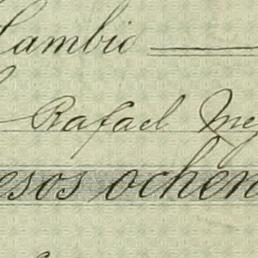 Cambio
Rafael
pesos ochen